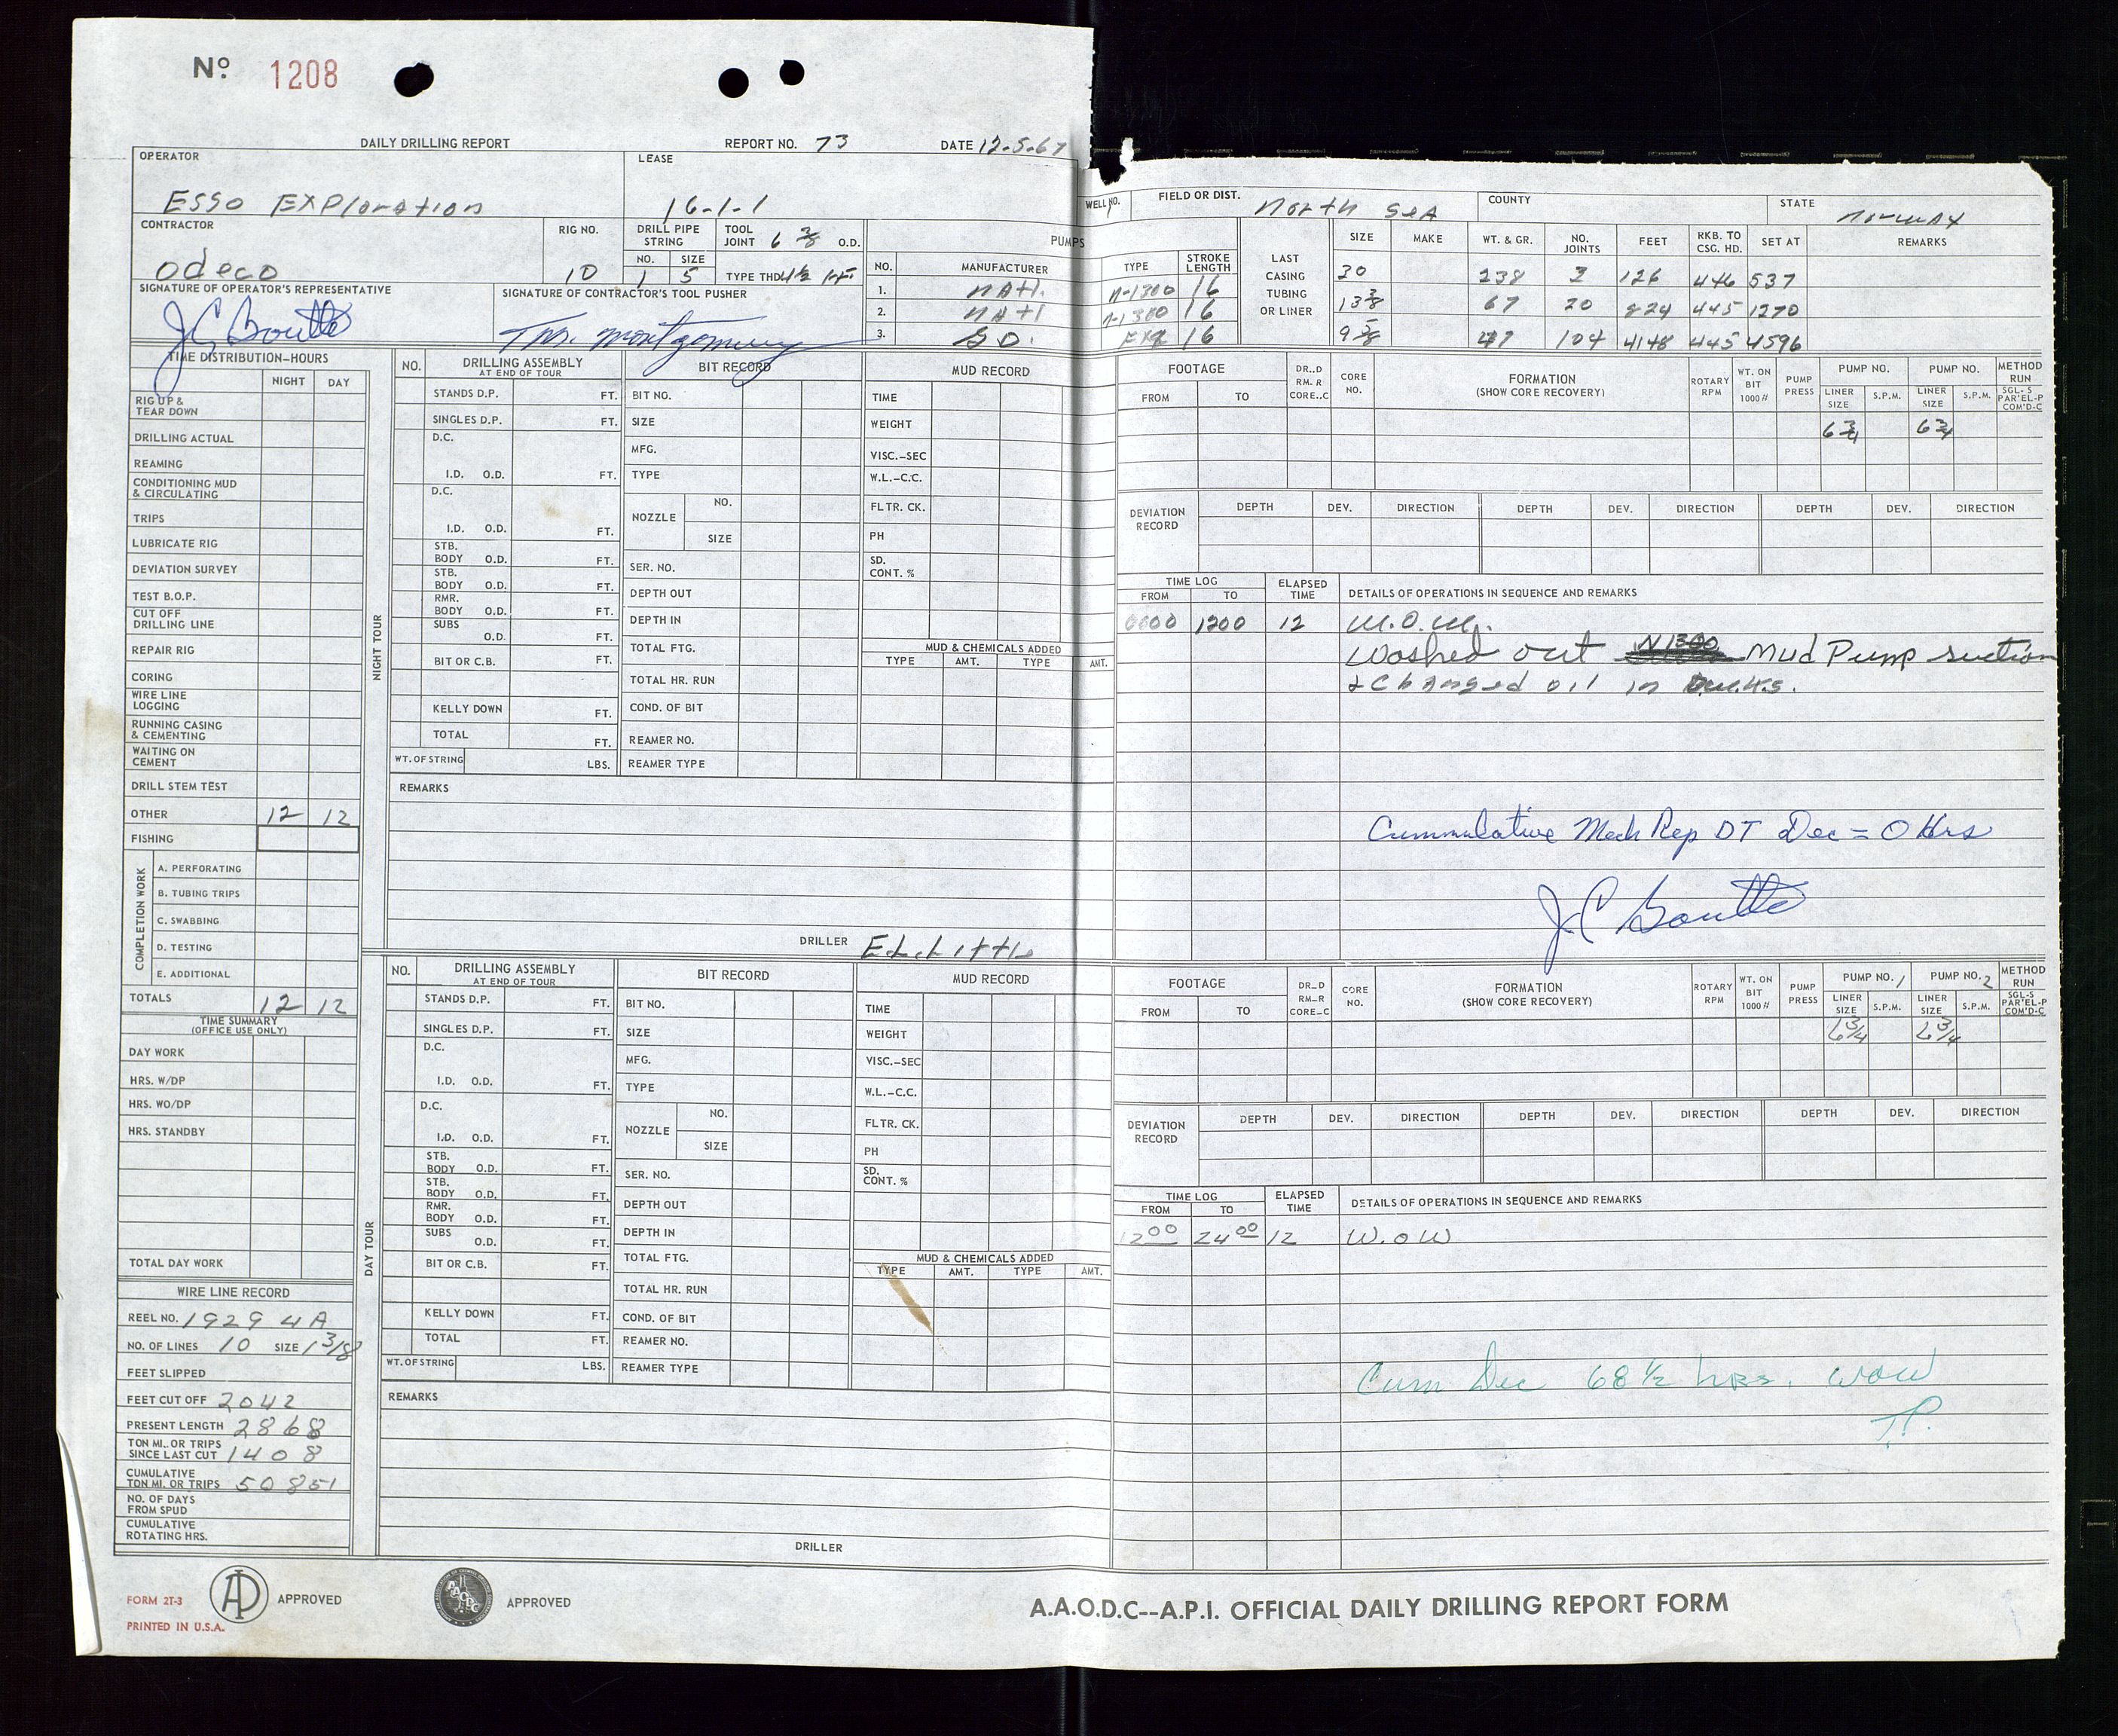 Nº 1208
DAILY DRILLING REPORT REPORT NO. 73 DATE 12-5-67
OPERATOR LEASE WELL NO. FIELD OR DIST. North Sea COUNTY STATE Norway
Esso Exploration 16-1-1
CONTRACTOR RIG NO. DRILL PIPE STRING TOOL JOINT 6 3/8 O.D. PUMPS
Odeco 10 NO. 1 SIZE 5 TYPE THD 4 1/2 IF
NO. MANUFACTURER TYPE STROKE LENGTH
1. NATL. N-1300 16
2. NATL N-1300 16
3. G.D. 16
SIGNATURE OF OPERATOR'S REPRESENTATIVE SIGNATURE OF CONTRACTOR'S TOOL PUSHER
J C Boutte Montgomery
LAST CASING TUBING OR LINER
SIZE MAKE WT. & GR. NO. JOINTS FEET RKB. TO CSG. HD. SET AT REMARKS
30 238 3 126 446 537
13 3/8 67 20 824 445 1270
9 5/8 47 104 4148 445 4596
TIME DISTRIBUTION-HOURS
NIGHT DAY
RIG UP & TEAR DOWN
DRILLING ACTUAL
REAMING
CONDITIONING MUD & CIRCULATING
TRIPS
LUBRICATE RIG
DEVIATION SURVEY
TEST B.O.P.
CUT OFF DRILLING LINE
REPAIR RIG
CORING
WIRE LINE LOGGING
RUNNING CASING & CEMENTING
WAITING ON CEMENT
DRILL STEM TEST
OTHER 12 12
FISHING
COMPLETION WORK
A. PERFORATING
B. TUBING TRIPS
C. SWABBING
D. TESTING
E. ADDITIONAL
TOTALS 12 12
TIME SUMMARY
(OFFICE USE ONLY)
DAY WORK
HRS. W/DP
HRS. WO/DP
HRS. STANDBY
TOTAL DAY WORK
WIRE LINE RECORD
REEL NO. 1929 4A
NO. OF LINES 10 SIZE 1 3/8
FEET SLIPPED
FEET CUT OFF 2042
PRESENT LENGTH 2868
TON MI. OR TRIPS SINCE LAST CUT 1408
CUMULATIVE TON MI. OR TRIPS 50851
NO. OF DAYS FROM SPUD
CUMULATIVE ROTATING HRS.
NIGHT TOUR
NO. DRILLING ASSEMBLY AT END OF TOUR
STANDS D.P. FT.
SINGLES D.P. FT.
D.C.
I.D. O.D. FT.
D.C.
I.D. O.D. FT.
STB. BODY O.D. FT.
STB. BODY O.D. FT.
RMR. BODY O.D. FT.
SUBS O.D. FT.
BIT OR C.B. FT.
KELLY DOWN FT.
TOTAL FT.
WT. OF STRING LBS.
BIT RECORD
BIT NO.
SIZE
MFG.
TYPE
NOZZLE NO.
SIZE
SER. NO.
DEPTH OUT
DEPTH IN
TOTAL FTG.
TOTAL HR. RUN
COND. OF BIT
REAMER NO.
REAMER TYPE
MUD RECORD
TIME
WEIGHT
VISC.-SEC
W.L.-C.C.
FLTR. CK.
PH
SD. CONT. %
MUD & CHEMICALS ADDED
TYPE AMT. TYPE AMT.
REMARKS
DRILLER Ed Little
FOOTAGE FROM TO DR._D RM._R CORE._C CORE NO. FORMATION (SHOW CORE RECOVERY) ROTARY RPM WT. ON BIT 1000# PUMP PRESS PUMP NO. LINER SIZE S.P.M. PUMP NO. LINER SIZE S.P.M. METHOD RUN SGL-S PAR'EL-P COM'D-C
6 3/4 6 3/4
DEVIATION RECORD DEPTH DEV. DIRECTION DEPTH DEV. DIRECTION DEPTH DEV. DIRECTION
TIME LOG FROM TO ELAPSED TIME DETAILS OF OPERATIONS IN SEQUENCE AND REMARKS
0000 1200 12 W.O.W.
Washed out N1300 Mud Pump suction
& Changed oil in
Cummulative Mech Rep DT Dec = 0 Hrs
J C Boutte
DAY TOUR
NO. DRILLING ASSEMBLY AT END OF TOUR
STANDS D.P. FT.
SINGLES D.P. FT.
D.C.
I.D. O.D. FT.
D.C.
I.D. O.D. FT.
STB. BODY O.D. FT.
STB. BODY O.D. FT.
RMR. BODY O.D. FT.
SUBS O.D. FT.
BIT OR C.B. FT.
KELLY DOWN FT.
TOTAL FT.
WT. OF STRING LBS.
BIT RECORD
BIT NO.
SIZE
MFG.
TYPE
NOZZLE NO.
SIZE
SER. NO.
DEPTH OUT
DEPTH IN
TOTAL FTG.
TOTAL HR. RUN
COND. OF BIT
REAMER NO.
REAMER TYPE
MUD RECORD
TIME
WEIGHT
VISC.-SEC
W.L.-C.C.
FLTR. CK.
PH
SD. CONT. %
MUD & CHEMICALS ADDED
TYPE AMT. TYPE AMT.
REMARKS
DRILLER
FOOTAGE FROM TO DR._D RM._R CORE._C CORE NO. FORMATION (SHOW CORE RECOVERY) ROTARY RPM WT. ON BIT 1000# PUMP PRESS PUMP NO. 1 LINER SIZE S.P.M. PUMP NO. 2 LINER SIZE S.P.M. METHOD RUN SGL-S PAR'EL-P COM'D-C
6 3/4 6 3/4
DEVIATION RECORD DEPTH DEV. DIRECTION DEPTH DEV. DIRECTION DEPTH DEV. DIRECTION
TIME LOG FROM TO ELAPSED TIME DETAILS OF OPERATIONS IN SEQUENCE AND REMARKS
1200 2400 12 W.O.W
Cum Dec 68 1/2 hrs. WOW
J.P.
FORM 2T-3
PRINTED IN U.S.A.
APPROVED
AAODC
APPROVED
A.A.O.D.C--A.P.I. OFFICIAL DAILY DRILLING REPORT FORM